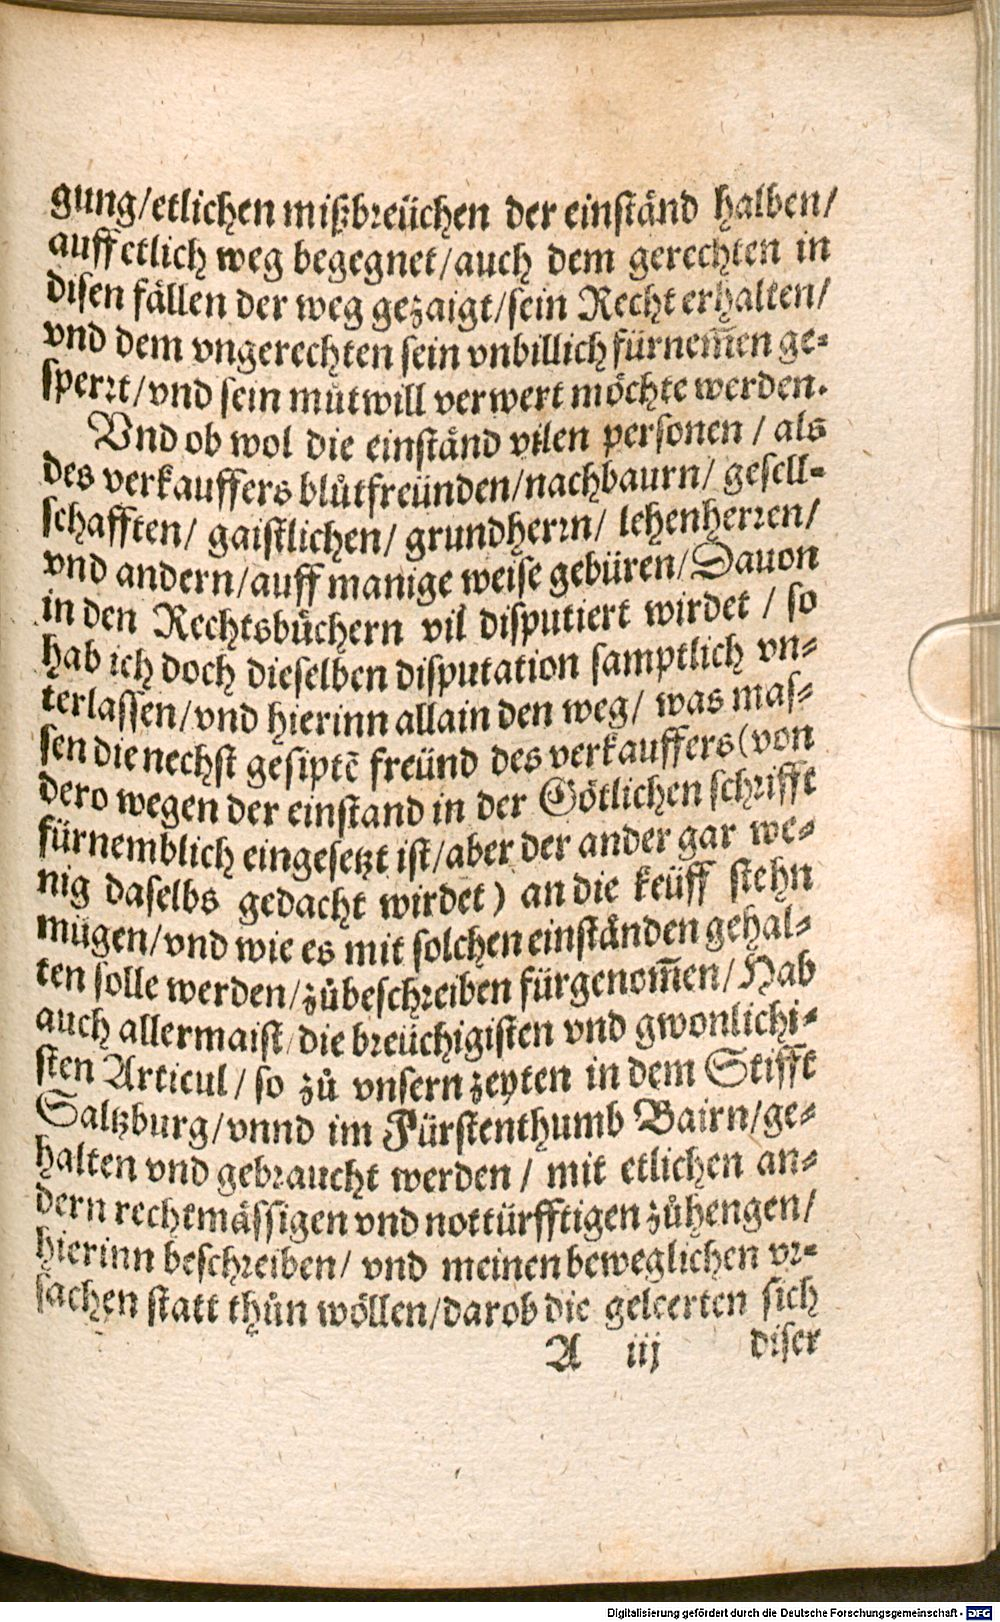 gung/etlichen mißbreüchen der einständ halben/
auff etlich weg begegnet/auch dem gerechten in
disen fällen der weg gezaigt/sein Recht erhalten/
vnd dem vngerechten sein vnbillich fürnem̃en ge-
sperrt/vnd sein můtwill verwert möchte werden.
Vnd ob wol die einständ vilen personen / als
des verkauffers blůtfreünden/nachbaurn/ gesell-
schafften/ gaistlichen/ grundherrn/ lehenherren/
vnd andern/auff manige weise gebüren/Dauon
in den Rechtsbüchern vil disputiert wirdet / so
hab ich doch dieselben disputation samptlich vn-
terlassen/vnd hierinn allain den weg/ was mas-
sen die nechst gesiptẽ freünd des verkauffers(von
dero wegen der einstand in der Götlichen schrifft
fürnemblich eingesetzt ist/aber der ander gar we-
nig daselbs gedacht wirdet) an die keüff stehn
mügen/vnd wie es mit solchen einständen gehal-
ten solle werden/zůbeschreiben fürgenom̃en/Hab
auch allermaist/die breüchigisten vnd gwonlichi-
sten Articul/ so zů vnsern zeyten in dem Stifft
Saltzburg/vnnd im Fürstenthumb Bairn/ge-
halten vnd gebraucht werden / mit etlichen an-
dern rechtmässigen vnd nottürfftigen zůhengen/
hierinn beschreiben/ vnd meinen beweglichen vr-
sachen statt thůn wöllen/darob die geleerten sich
A iij diser
Digitalisierung gefördert durch die Deutsche Forschungsgemeinschaft - DFG